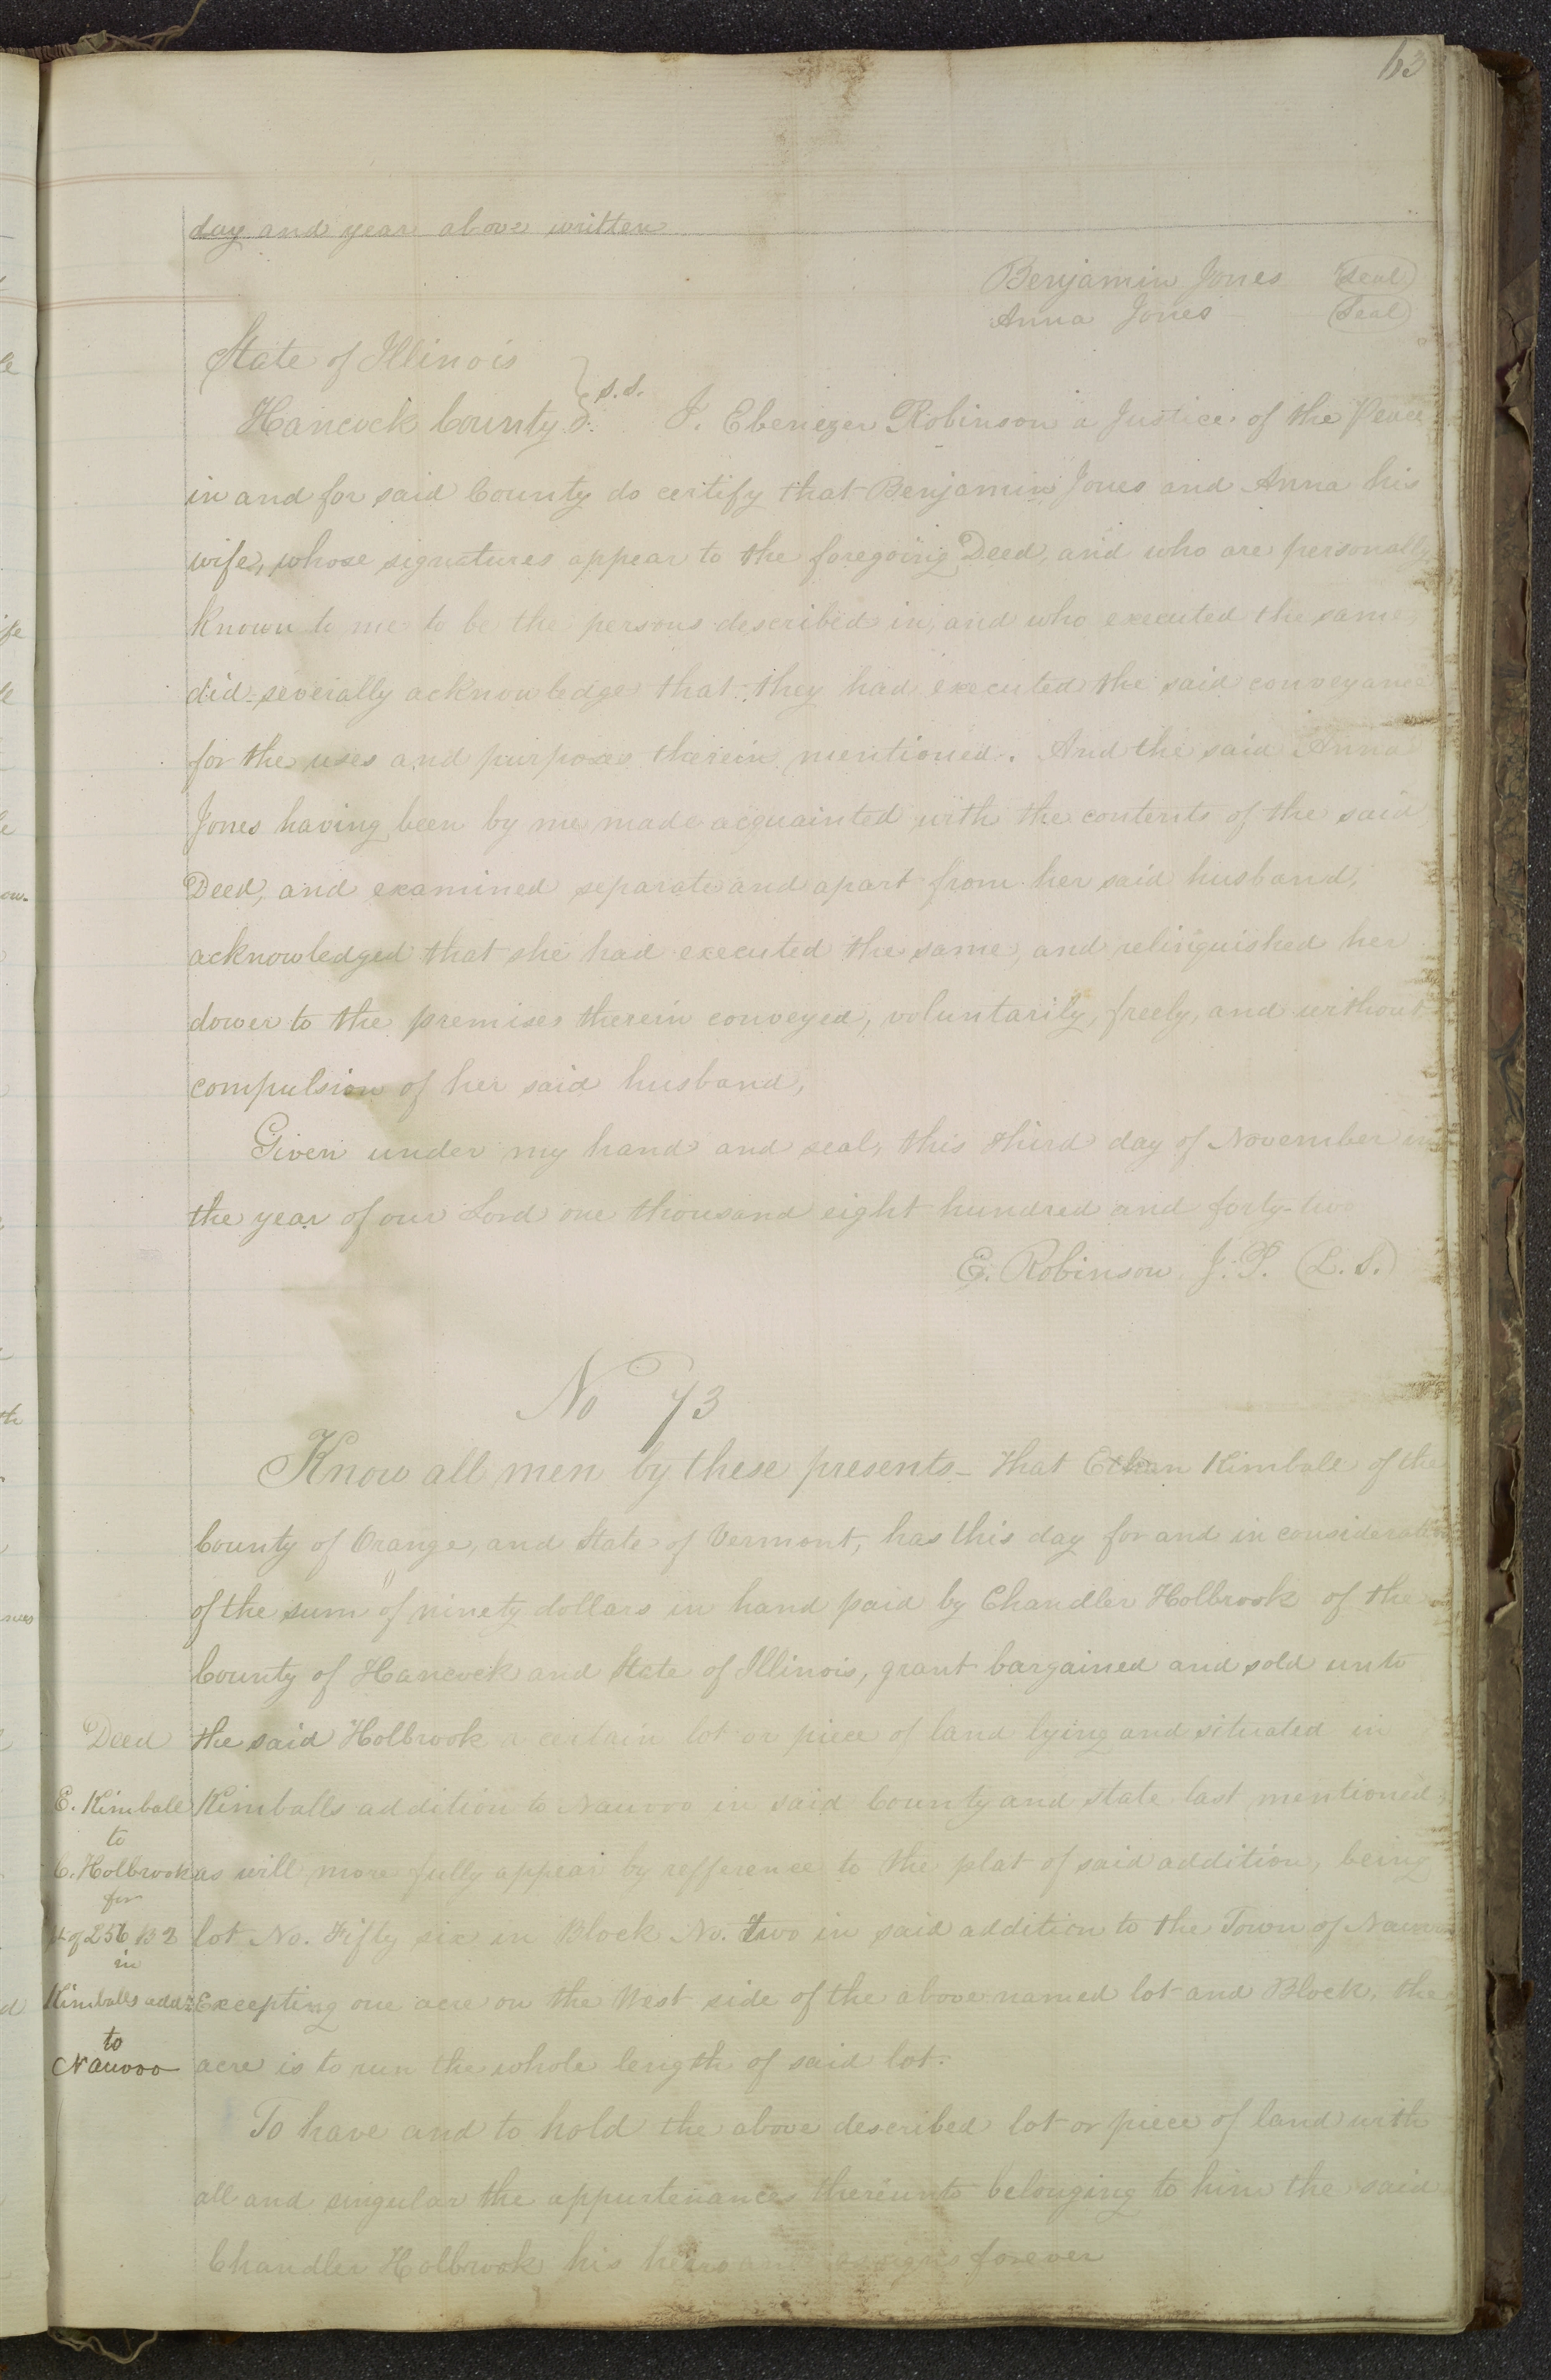 63
day and year above written
Benjamin Jones (Seal)
Anna Jones (Seal)
State of Illinois
Hancock County } s.s. I. Ebenezer Robinson a Justice of the Peace
in and for said County do certify that Benjamin Jones and Anna his
wife, whose signatures appear to the foregoing Deed, and who are personally
known to me to be the persons described in, and who executed the same,
did severally acknowledge that they had executed the said conveyance
for the uses and purposes therein mentioned. And the said Anna
Jones having been by me made acquainted with the contents of the said
Deed, and examined separate and apart from her said husband,
acknowledged that she had executed the same, and relinquished her
dower to the premises therein conveyed, voluntarily, freely, and without
compulsion of her said husband,
Given under my hand and seal, this third day of November in
the year of our Lord one thousand eight hundred and forty-two
E. Robinson J.P. (L.S.)
No 73
Know all men by these presents- that Ethan Kimball of the
County of Orange, and State of Vermont, has this day for and in consideration
of the sum of ninety dollars in hand paid by Chandler Holbrook of the
County of Hancock and State of Illinois, grant bargained and sold unto
the said Holbrook a certain lot or piece of land lying and situated in
Kimballs addition to Nauvoo in said County and state last mentioned
as will more fully appear by refference to the plat of said addition, being
lot No. Fifty six in Block No. Two in said addition to the Town of Nauvoo
Excepting one acre on the West side of the above named lot and Block, the
acre is to run the whole length of said lot.
To have and to hold the above described lot or piece of land with
all and singular the appurtenances thereunto belonging to him the said
Chandler Holbrook his heirs and assigns forever
Deed
E. Kimball
to
C. Holbrook
for
56 B 2
in
Kimballs add
to
Nauvoo